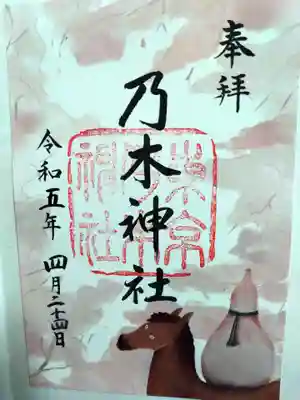 奉拝
乃木神社
東京乃木神社
令和五年 四月二十四日